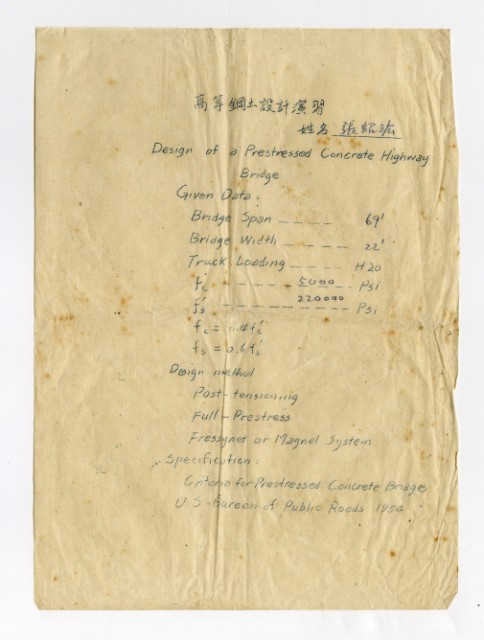 高等鋼土設計演習
姓名 張紹
Design of a Prestressed Concrete Highway
Bridge
Given Data:
Bridge Span ---- 69'
Bridge Width ---- 22'
Truck Loading ---- H20
fc' ---- 5000 Psi
fs' ---- 220000 Psi
fc = 0.4fc'
fs = 0.6fs'
Design method
Post-tensioning
Full-Prestress
Fressynet or Magnel System
Specification:
Criteria for Prestressed Concrete Bridges
U S Bureau of Public Roads 1954